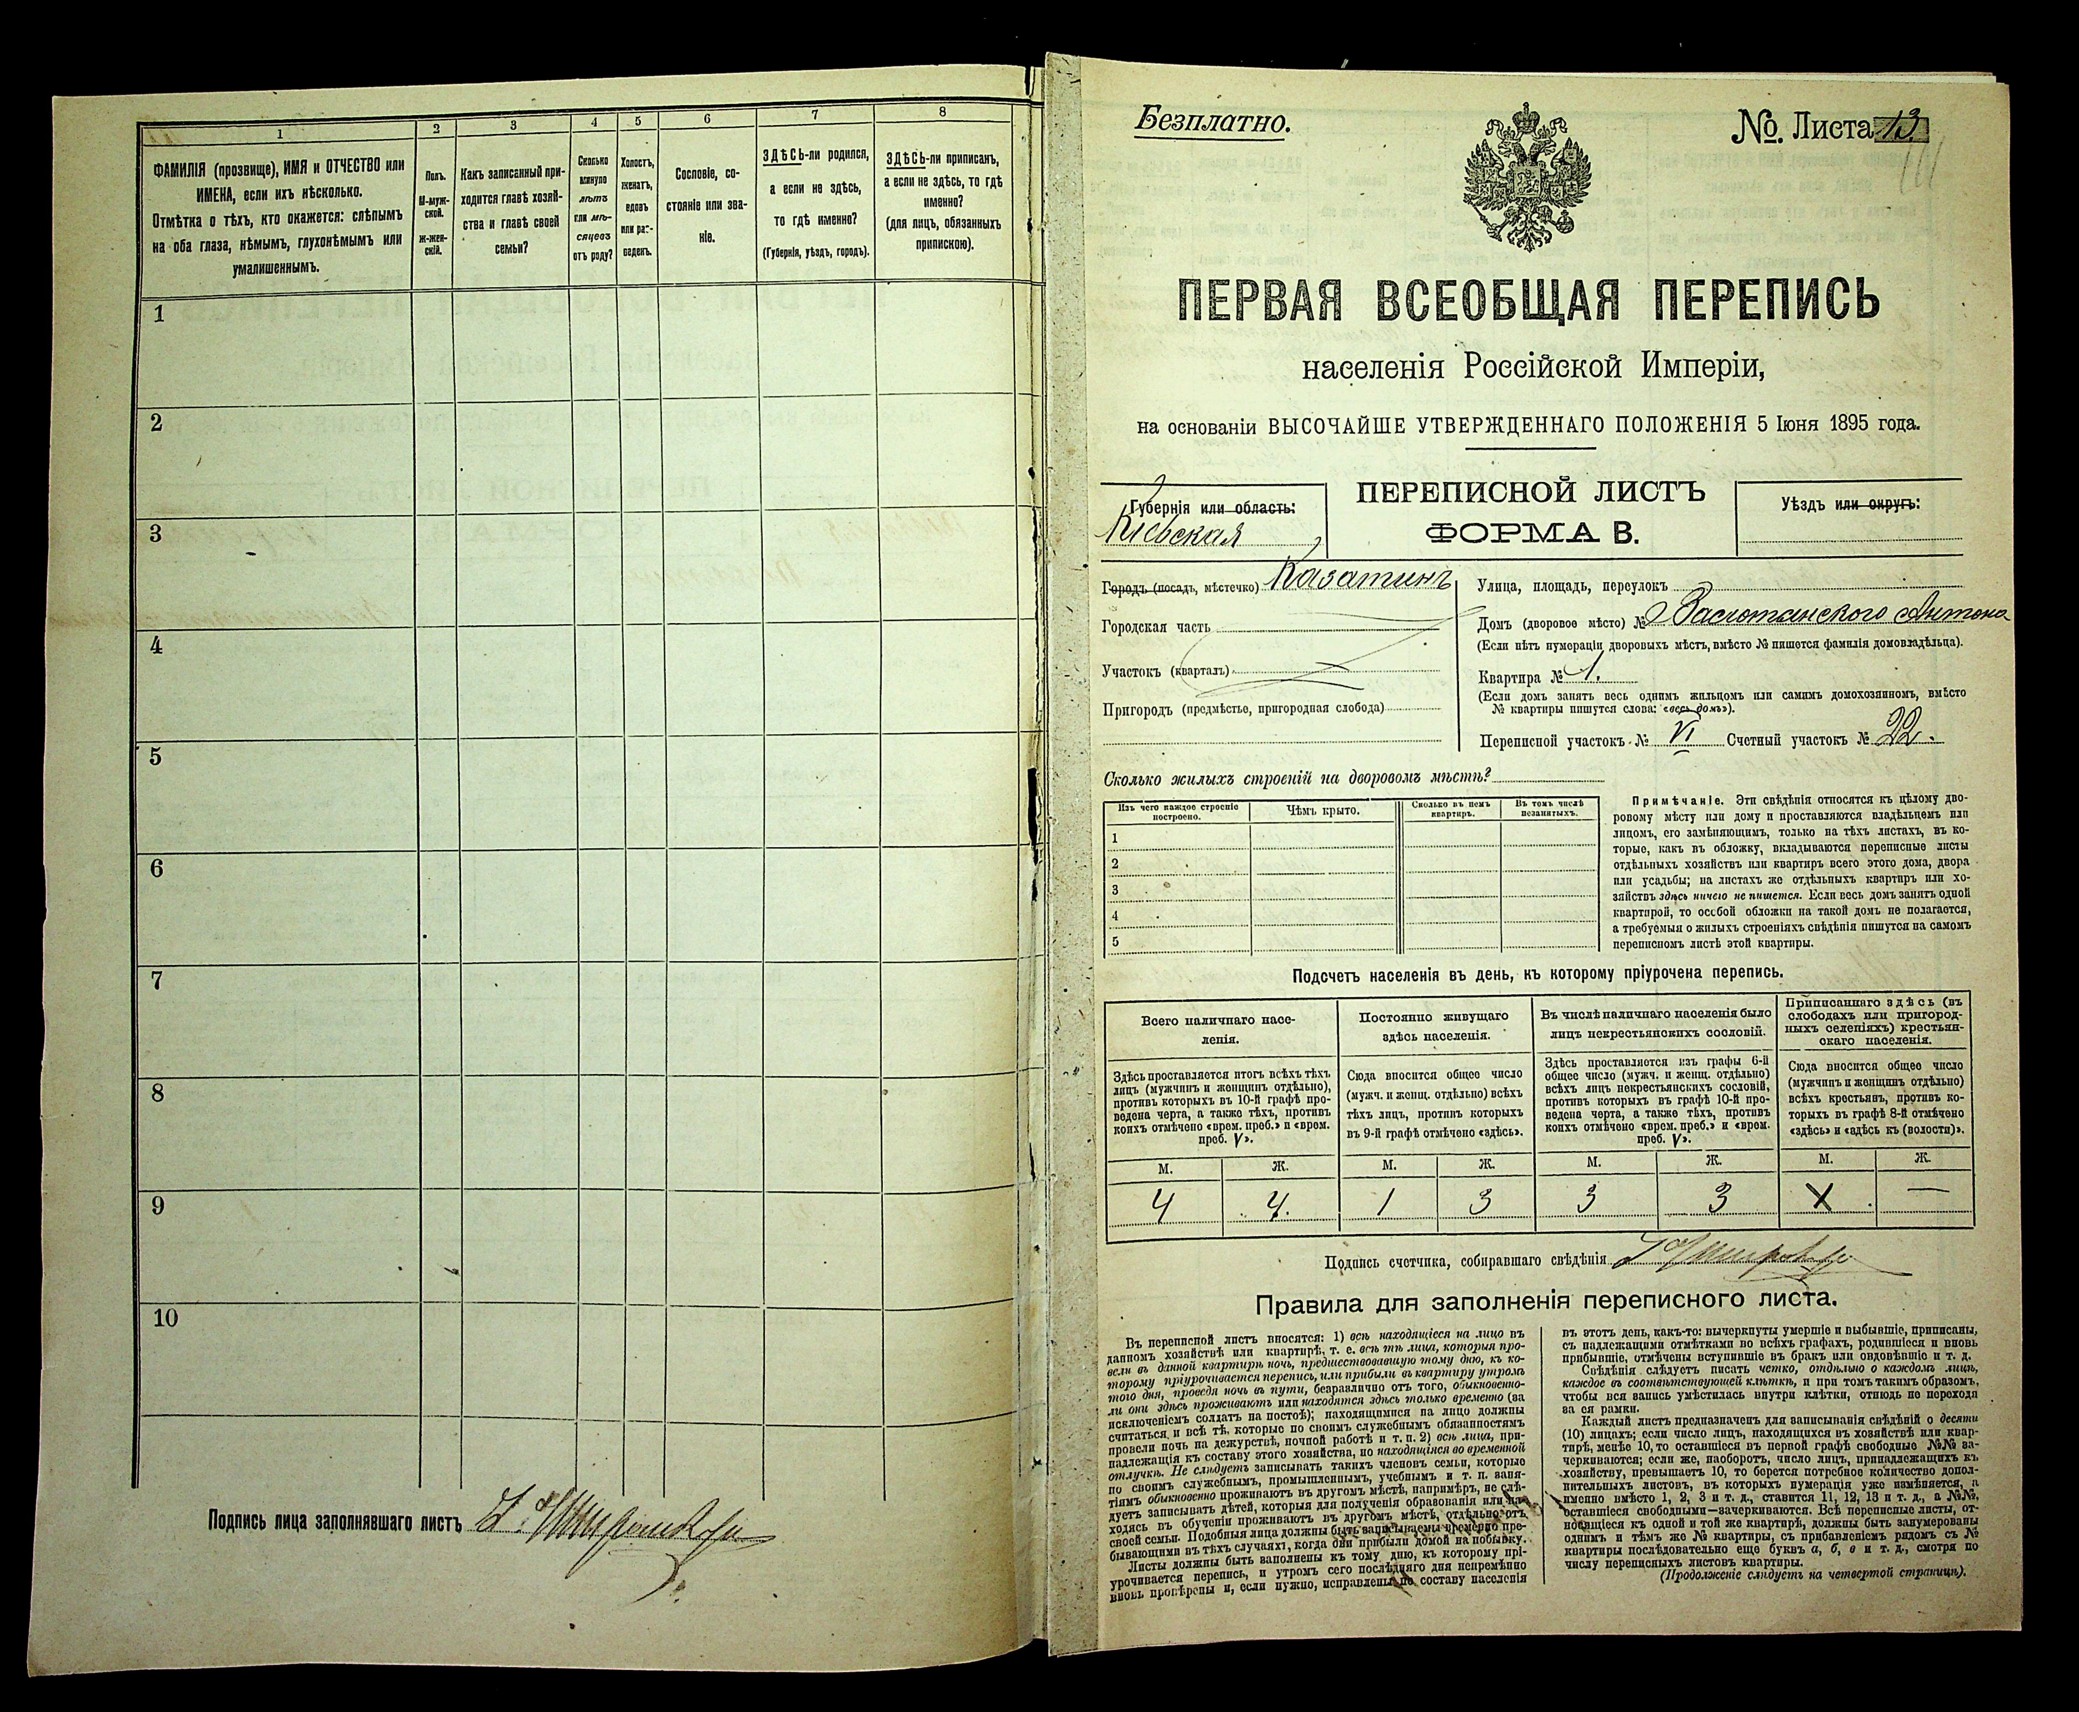 1
2
3
4
5
6
7
8
ФАМИЛІЯ (прозвище), ИМЯ и ОТЧЕСТВО или
ИМЕНА, если ихъ нѣсколько.
Отмѣтка о тѣхъ, кто окажется: слѣпымъ
на оба глаза, нѣмымъ, глухонѣмымъ или
умалишеннымъ.
Полъ.
М-муж-
ской.
ж-жен-
скій.
Какъ записанный при-
ходится главѣ хозяй-
ства и главѣ своей
семьи?
Сколько
минуло
лѣтъ
или мѣ-
сяцевъ
отъ роду?
Холостъ,
женатъ,
вдовъ
или раз-
веденъ.
Сословіе, со-
стояніе или зва-
ніе.
ЗДѢСЬ-ли родился,
а если не здѣсь,
то гдѣ именно?
(Губернія, уѣздъ, городъ).
ЗДѢСЬ-ли приписанъ,
а если не здѣсь, то гдѣ
именно?
(для лицъ, обязанныхъ
припискою).
1
2
3
4
5
6
7
8
9
10
Подпись лица заполнявшаго листъ
Безплатно.
№. Листа 13.
ПЕРВАЯ ВСЕОБЩАЯ ПЕРЕПИСЬ
населенія Россійской Имперіи,
на основаніи ВЫСОЧАЙШЕ УТВЕРЖДЕННАГО ПОЛОЖЕНІЯ 5 Іюня 1895 года.
Губернія или область:
Кіевская
ПЕРЕПИСНОЙ ЛИСТЪ
ФОРМА В.
Уѣздъ или округъ:
Городъ (посадъ, мѣстечко) Казатинъ
Городская часть
Участокъ (кварталъ)
Пригородъ (предмѣстье, пригородная слобода)
Улица, площадь, переулокъ
Домъ (дворовое мѣсто) № Антона
(Если нѣтъ нумераціи дворовыхъ мѣстъ, вмѣсто № пишется фамилія домовладѣльца).
Квартира № 1.
(Если домъ занятъ весь однимъ жильцомъ или самимъ домохозяиномъ, вмѣсто
№ квартиры пишутся слова: «весь домъ»).
Переписной участокъ № VI Счетный участокъ № 22.
Сколько жилыхъ строеній на дворовомъ мѣстѣ?
Изъ чего каждое строеніе
построено.
Чѣмъ крыто.
Сколько въ немъ
квартиръ.
Въ томъ числѣ
незанятыхъ.
1
2
3
4
5
Примѣчаніе. Эти свѣдѣнія относятся къ цѣлому дво-
ровому мѣсту или дому и проставляются владѣльцемъ или
лицомъ, его замѣняющимъ, только на тѣхъ листахъ, въ ко-
торые, какъ въ обложку, вкладываются переписные листы
отдѣльныхъ хозяйствъ или квартиръ всего этого дома, двора
или усадьбы; на листахъ же отдѣльныхъ квартиръ или хо-
зяйствъ здѣсь ничего не пишется. Если весь домъ занятъ одной
квартирой, то особой обложки на такой домъ не полагается,
а требуемыя о жилыхъ строеніяхъ свѣдѣнія пишутся на самомъ
переписномъ листѣ этой квартиры.
Подсчетъ населенія въ день, къ которому пріурочена перепись.
Всего наличнаго насе-
ленія.
Постоянно живущаго
здѣсь населенія.
Въ числѣ наличнаго населенія было
лицъ некрестьянскихъ сословій.
Приписаннаго здѣсь (въ
слободахъ или пригород-
ныхъ селеніяхъ) крестьян-
скаго населенія.
Здѣсь проставляется итогъ всѣхъ тѣхъ
лицъ (мужчинъ и женщинъ отдѣльно),
противъ которыхъ въ 10-й графѣ про-
ведена черта, а также тѣхъ, противъ
коихъ отмѣчено «врем. преб.» и «врем.
преб. V».
Сюда вносится общее число
(мужч. и женщ. отдѣльно) всѣхъ
тѣхъ лицъ, противъ которыхъ
въ 9-й графѣ отмѣчено «здѣсь».
Здѣсь проставляется изъ графы 6-й
общее число (мужч. и женщ. отдѣльно)
всѣхъ лицъ некрестьянскихъ сословій,
противъ которыхъ въ графѣ 10-й про-
ведена черта, а также тѣхъ, противъ
коихъ отмѣчено «врем. преб.» и «врем.
преб. V».
Сюда вносится общее число
(мужчинъ и женщинъ отдѣльно)
всѣхъ крестьянъ, противъ ко-
торыхъ въ графѣ 8-й отмѣчено
«здѣсь» и «здѣсь къ (волости)».
М. Ж. М. Ж. М. Ж. М. Ж.
4 4. 1 3 3 3 X —
Подпись счетчика, собиравшаго свѣдѣнія
Правила для заполненія переписного листа.
Въ переписной листъ вносятся: 1) всѣ находящіеся на лицо въ
данномъ хозяйствѣ или квартирѣ, т. е. всѣ тѣ лица, которыя про-
вели въ данной квартирѣ ночь, предшествовавшую тому дню, къ ко-
торому пріурочивается перепись, или прибыли въ квартиру утромъ
того дня, проведя ночь въ пути, безразлично отъ того, обыкновенно-
ли они здѣсь проживаютъ или находятся здѣсь только временно (за
исключеніемъ солдатъ на постоѣ); находящимися на лицо должны
считаться и всѣ тѣ, которые по своимъ служебнымъ обязанностямъ
провели ночь на дежурствѣ, ночной работѣ и т. п. 2) всѣ лица, при-
надлежащія къ составу этого хозяйства, но находящіяся во временной
отлучкѣ. Не слѣдуетъ записывать такихъ членовъ семьи, которые
по своимъ служебнымъ, промышленнымъ, учебнымъ и т. п. заня-
тіямъ обыкновенно проживаютъ въ другомъ мѣстѣ, напримѣръ, не слѣ-
дуетъ записывать дѣтей, которыя для полученія образованія или на-
ходясь въ обученіи проживаютъ въ другомъ мѣстѣ, отдѣльно отъ
своей семьи. Подобныя лица должны быть записываемы временно пре-
бывающими въ тѣхъ случаяхъ, когда они прибыли домой на побывку.
Листы должны быть заполнены къ тому дню, къ которому прі-
урочивается перепись, и утромъ сего послѣдняго дня непремѣнно
вновь провѣрены и, если нужно, исправлены по составу населенія
въ этотъ день, какъ-то: вычеркнуты умершіе и выбывшіе, приписаны,
съ надлежащими отмѣтками во всѣхъ графахъ, родившіеся и вновь
прибывшіе, отмѣчены вступившіе въ бракъ или овдовѣвшіе и т. д.
Свѣдѣнія слѣдуетъ писать четко, отдѣльно о каждомъ лицѣ,
каждое въ соотвѣтствующей клѣткѣ, и при томъ такимъ образомъ,
чтобы вся запись умѣстилась внутри клѣтки, отнюдь не переходя
за ея рамки.
Каждый листъ предназначенъ для записыванія свѣдѣній о десяти
(10) лицахъ; если число лицъ, находящихся въ хозяйствѣ или квар-
тирѣ, менѣе 10, то оставшіеся въ первой графѣ свободные №№ за-
черкиваются; если же, наоборотъ, число лицъ, принадлежащихъ къ
хозяйству, превышаетъ 10, то берется потребное количество допол-
нительныхъ листовъ, въ которыхъ нумерація уже измѣняется, а
именно вмѣсто 1, 2, 3 и т. д., ставится 11, 12, 13 и т. д., а №№,
оставшіеся свободными—зачеркиваются. Всѣ переписные листы, от-
носящіеся къ одной и той же квартирѣ, должны быть занумерованы
однимъ и тѣмъ же № квартиры, съ прибавленіемъ рядомъ съ №
квартиры послѣдовательно еще буквъ а, б, в и т. д., смотря по
числу переписныхъ листовъ квартиры.
(Продолженіе слѣдуетъ на четвертой страницѣ).